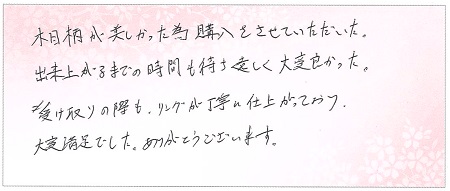 木目柄が美しかった為購入をさせていただいた。
出来上がるまでの時間も待ち遠しく大変良かった。
受け取りの際も、リングが丁寧に仕上がっており、
大変満足でした。ありがとうございます。